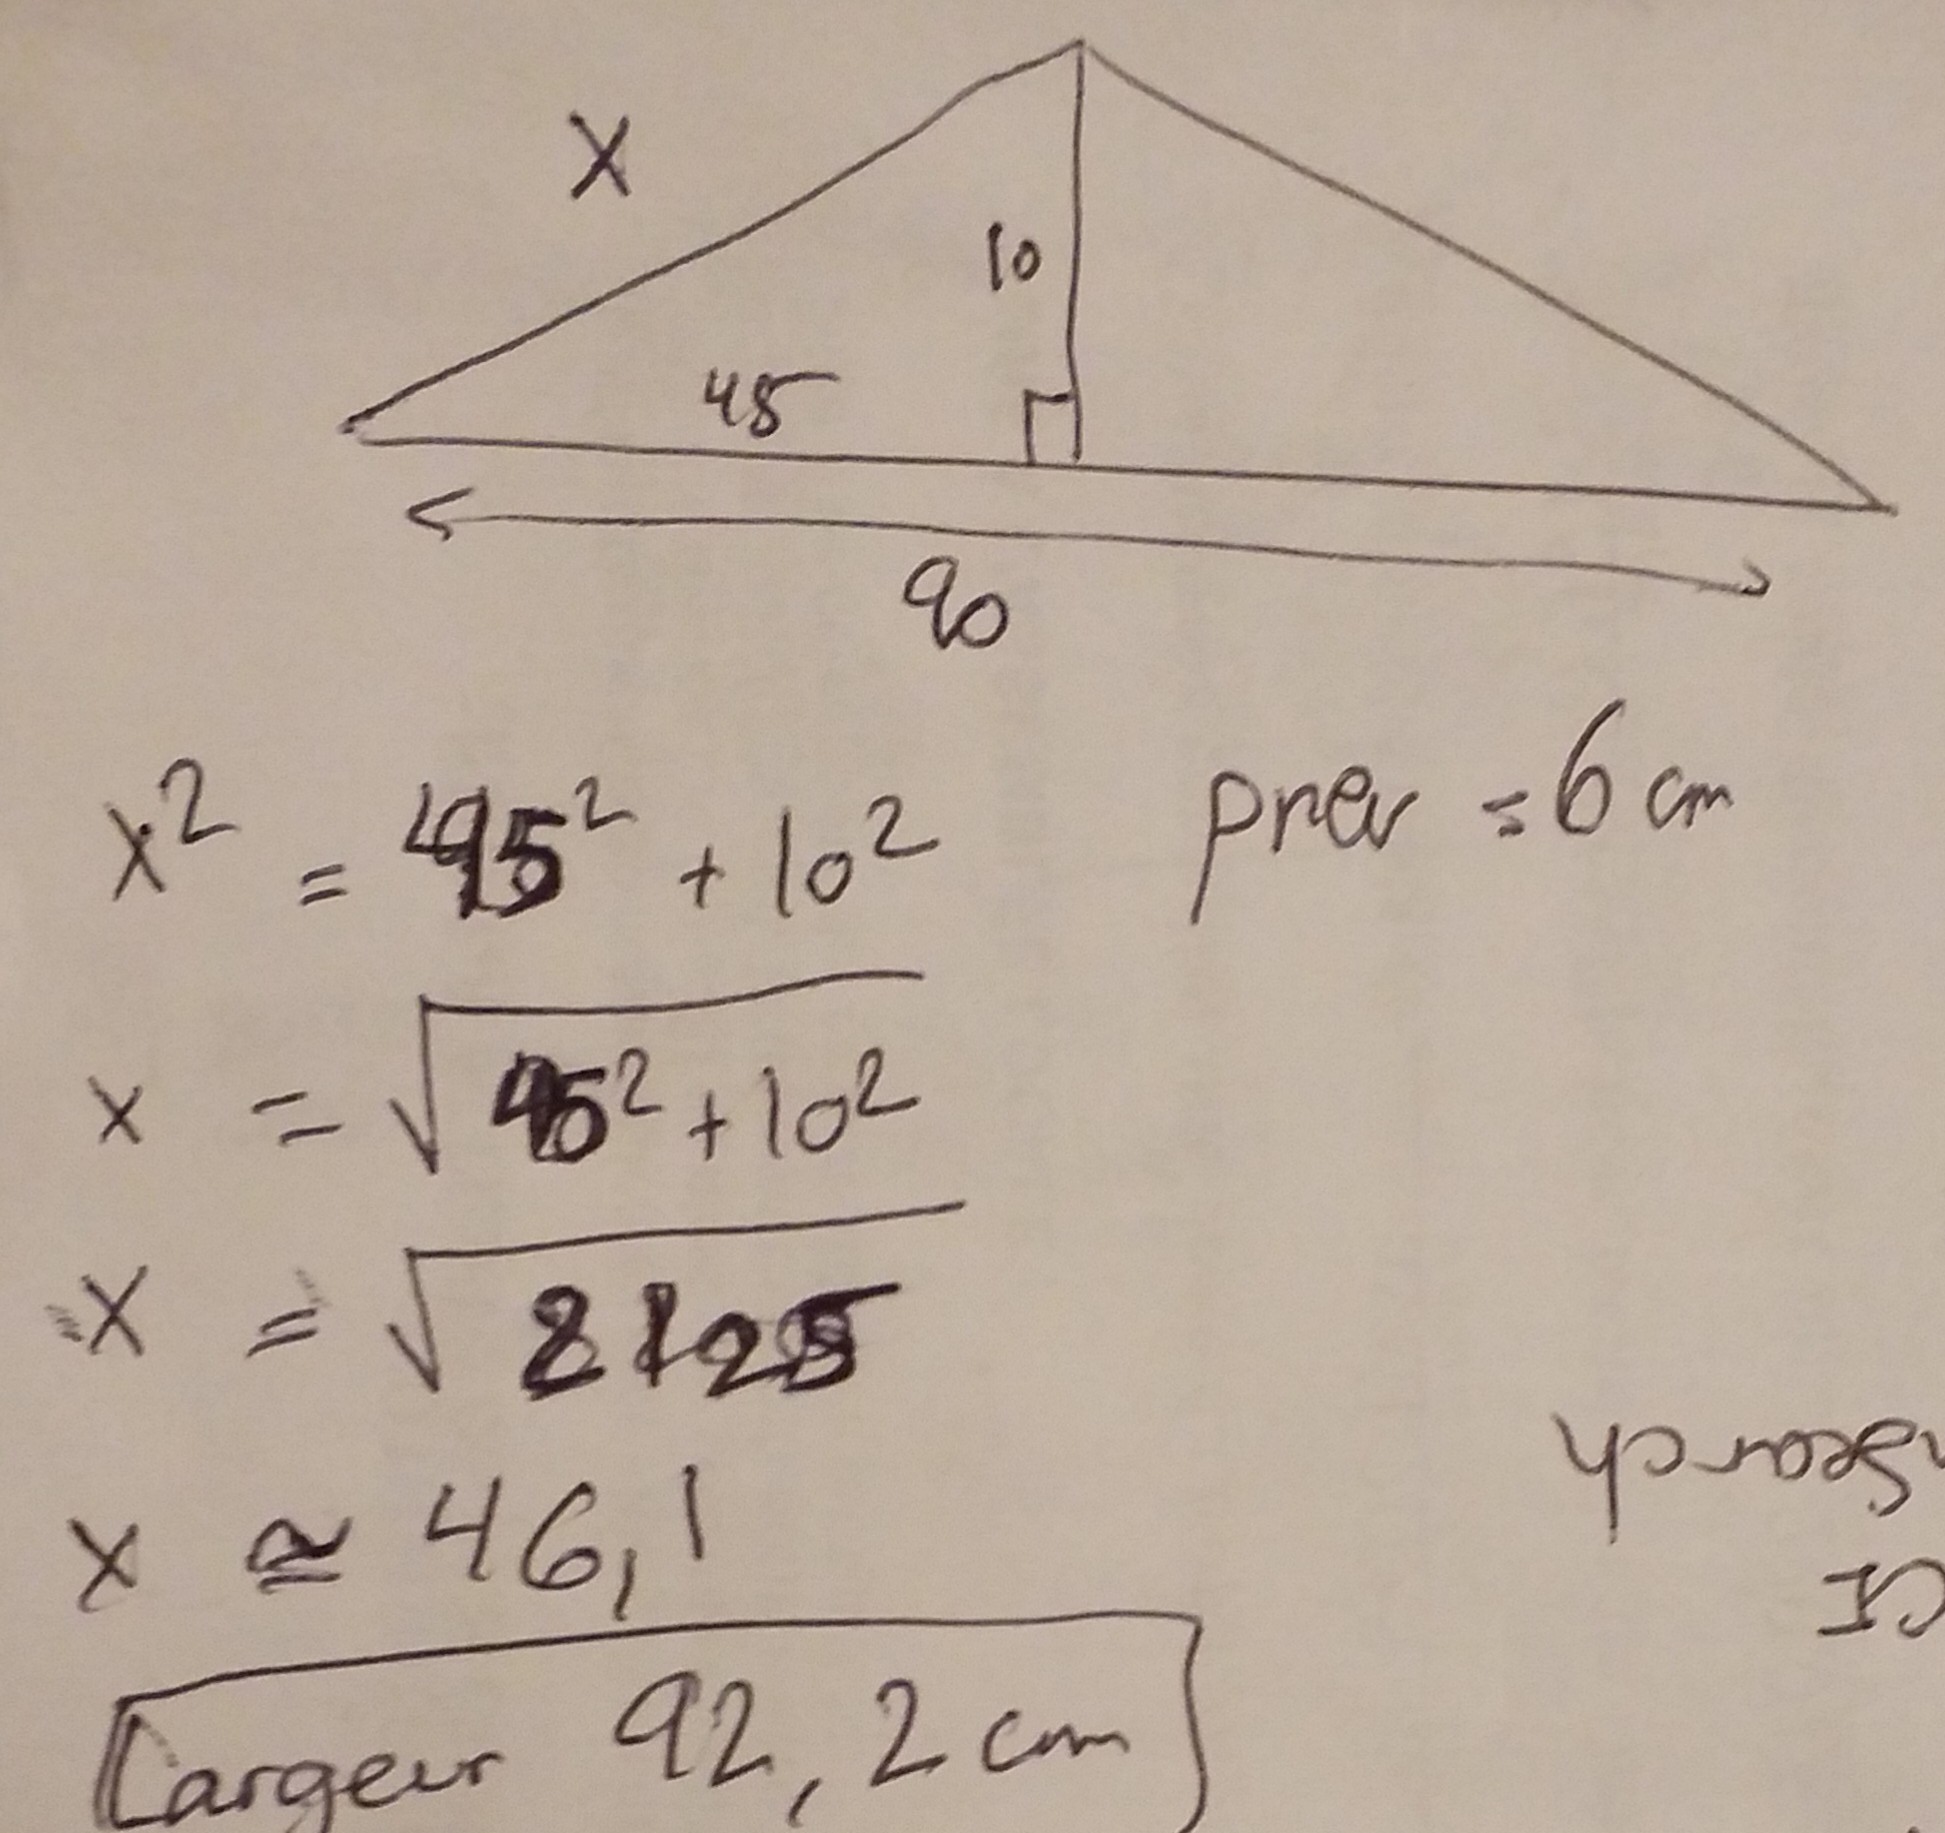 X
10
45
90
x² = 45² + 10²
prev = 6 cm
x = √45² + 10²
x = √2125
x ≅ 46,1
Largeur 92,2 cm